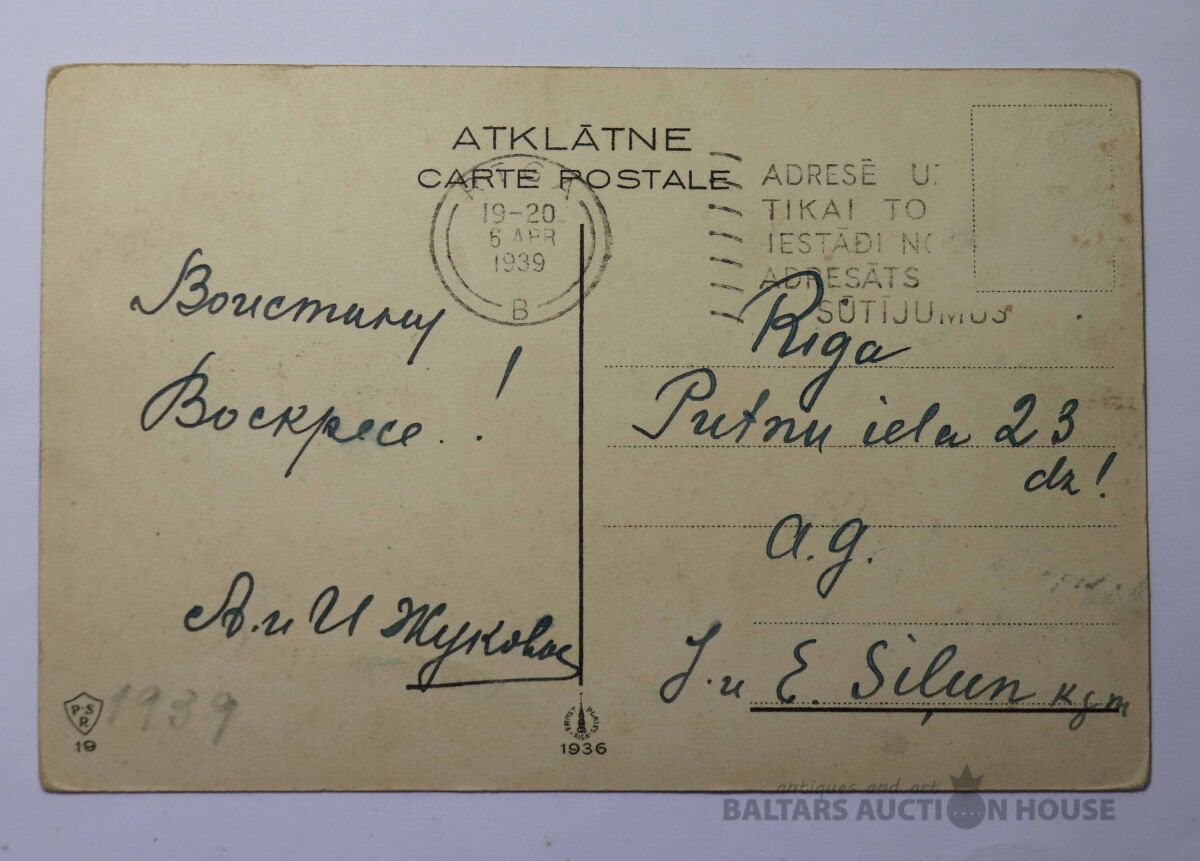 ATKLĀTNE
CARTE POSTALE
RIGA
19-20
6 APR
1939
B
ADRESĒ U
TIKAI TO
IESTĀDI NO
ADRESĀTS
SŪTĪJUMUS
Воистину
Воскресе..!
А. и И Жуковы
Riga
Putnu iela 23
dz!
a.g.
J. и E. Siļun kgm
P-S
R
19
1939
ERNST PLATES
RIGA
1936
antiques and art
BALTARS AUCTION HOUSE